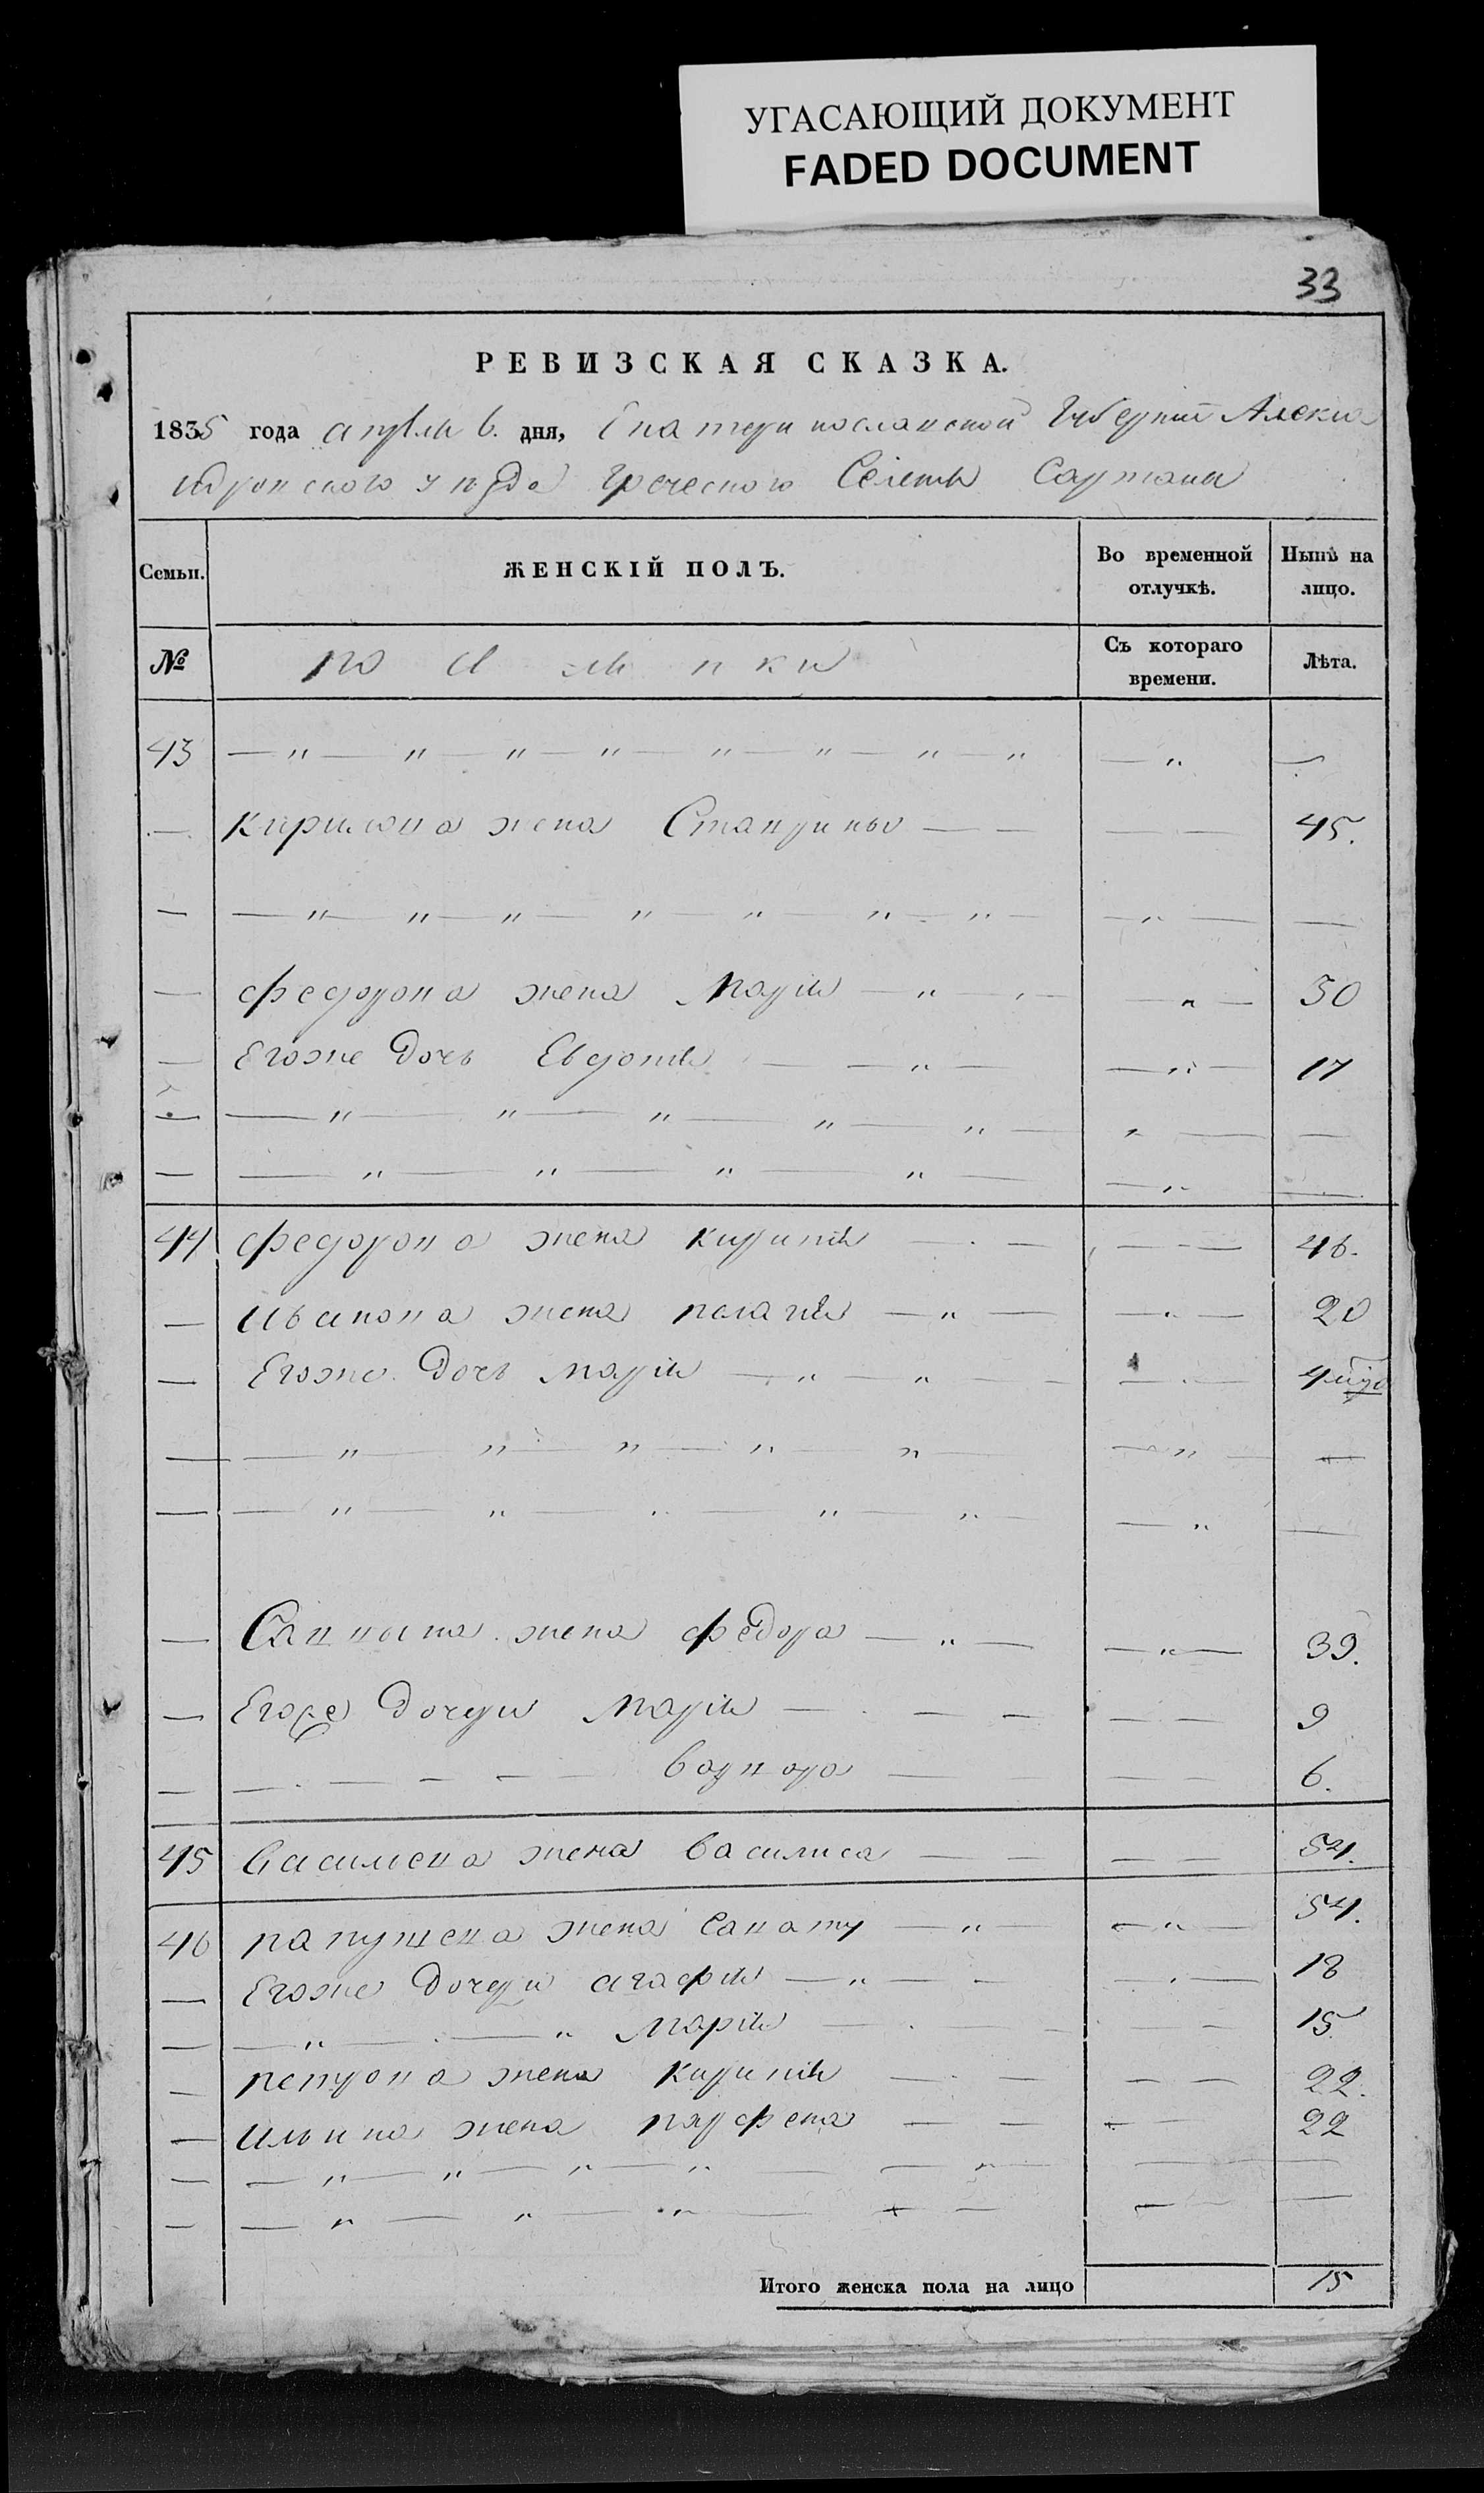 УГАСАЮЩИЙ ДОКУМЕНТ
FADED DOCUMENT
33
РЕВИЗСКАЯ СКАЗКА.
1835 года апреля 6. дня, Екатеринославской Губернии Алекса
ндровского уезда Греческого Селения Сартаны
Семьи.
ЖЕНСКІЙ ПОЛЪ.
Во временной отлучкѣ.
Нынѣ на лицо.
№
Съ котораго времени.
Лѣта.
43 — „ — „ — „ — „ — „ — „ — „ — „ — „ —
— Кирилова жена — — — — 45.
— — „ — „ — „ — „ — „ — „ — „ — — „ — —
— Федорова жена Марiя — „ — — „ — 30
— Егоже дочь Евдокiя — — „ — — „ — 17
— — „ — „ — „ — „ — „ — „ — —
— — „ — „ — „ — „ — — „ — —
44 Федорова жена Кирикiя — — — — 46.
— Иванова жена пелагiя — „ — — „ — 20
— Егоже дочь марiя — „ — „ — — — — 4
— — „ — „ — „ — „ — „ — — „ — —
— — „ — „ — „ — „ — „ — — „ —
— жена федора — „ — — „ — 39.
— Егоже дочери Марiя — — — — — 9
— — — — — варвара — — — 6.
45 Васильева жена василиса — — — — 54.
46 жена — „ — — „ — 54.
— Егоже дочери агафiя — „ — — — — 18
— — „ — — „ Марiя — — — — 15.
— петрова жена Кирикiя — — — — 22.
— Ильина жена парфена — — — — 22
— — „ — „ — „ — „ — — „ — — —
— — „ — „ — „ — — — — —
Итого женска пола на лицо 15